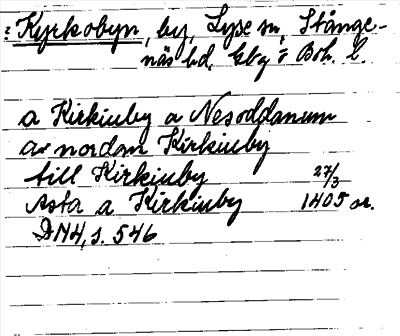 : Kyrkobyn, by, Lyse sn, Stånge-
näs hd. Gbg o Boh. l.
a Kirkiuby a Nesoddanum
av nordan Kirkiuby
till Kirkiuby 27/3
Asta a Kirkiuby 1405 or.
DN4, s. 546